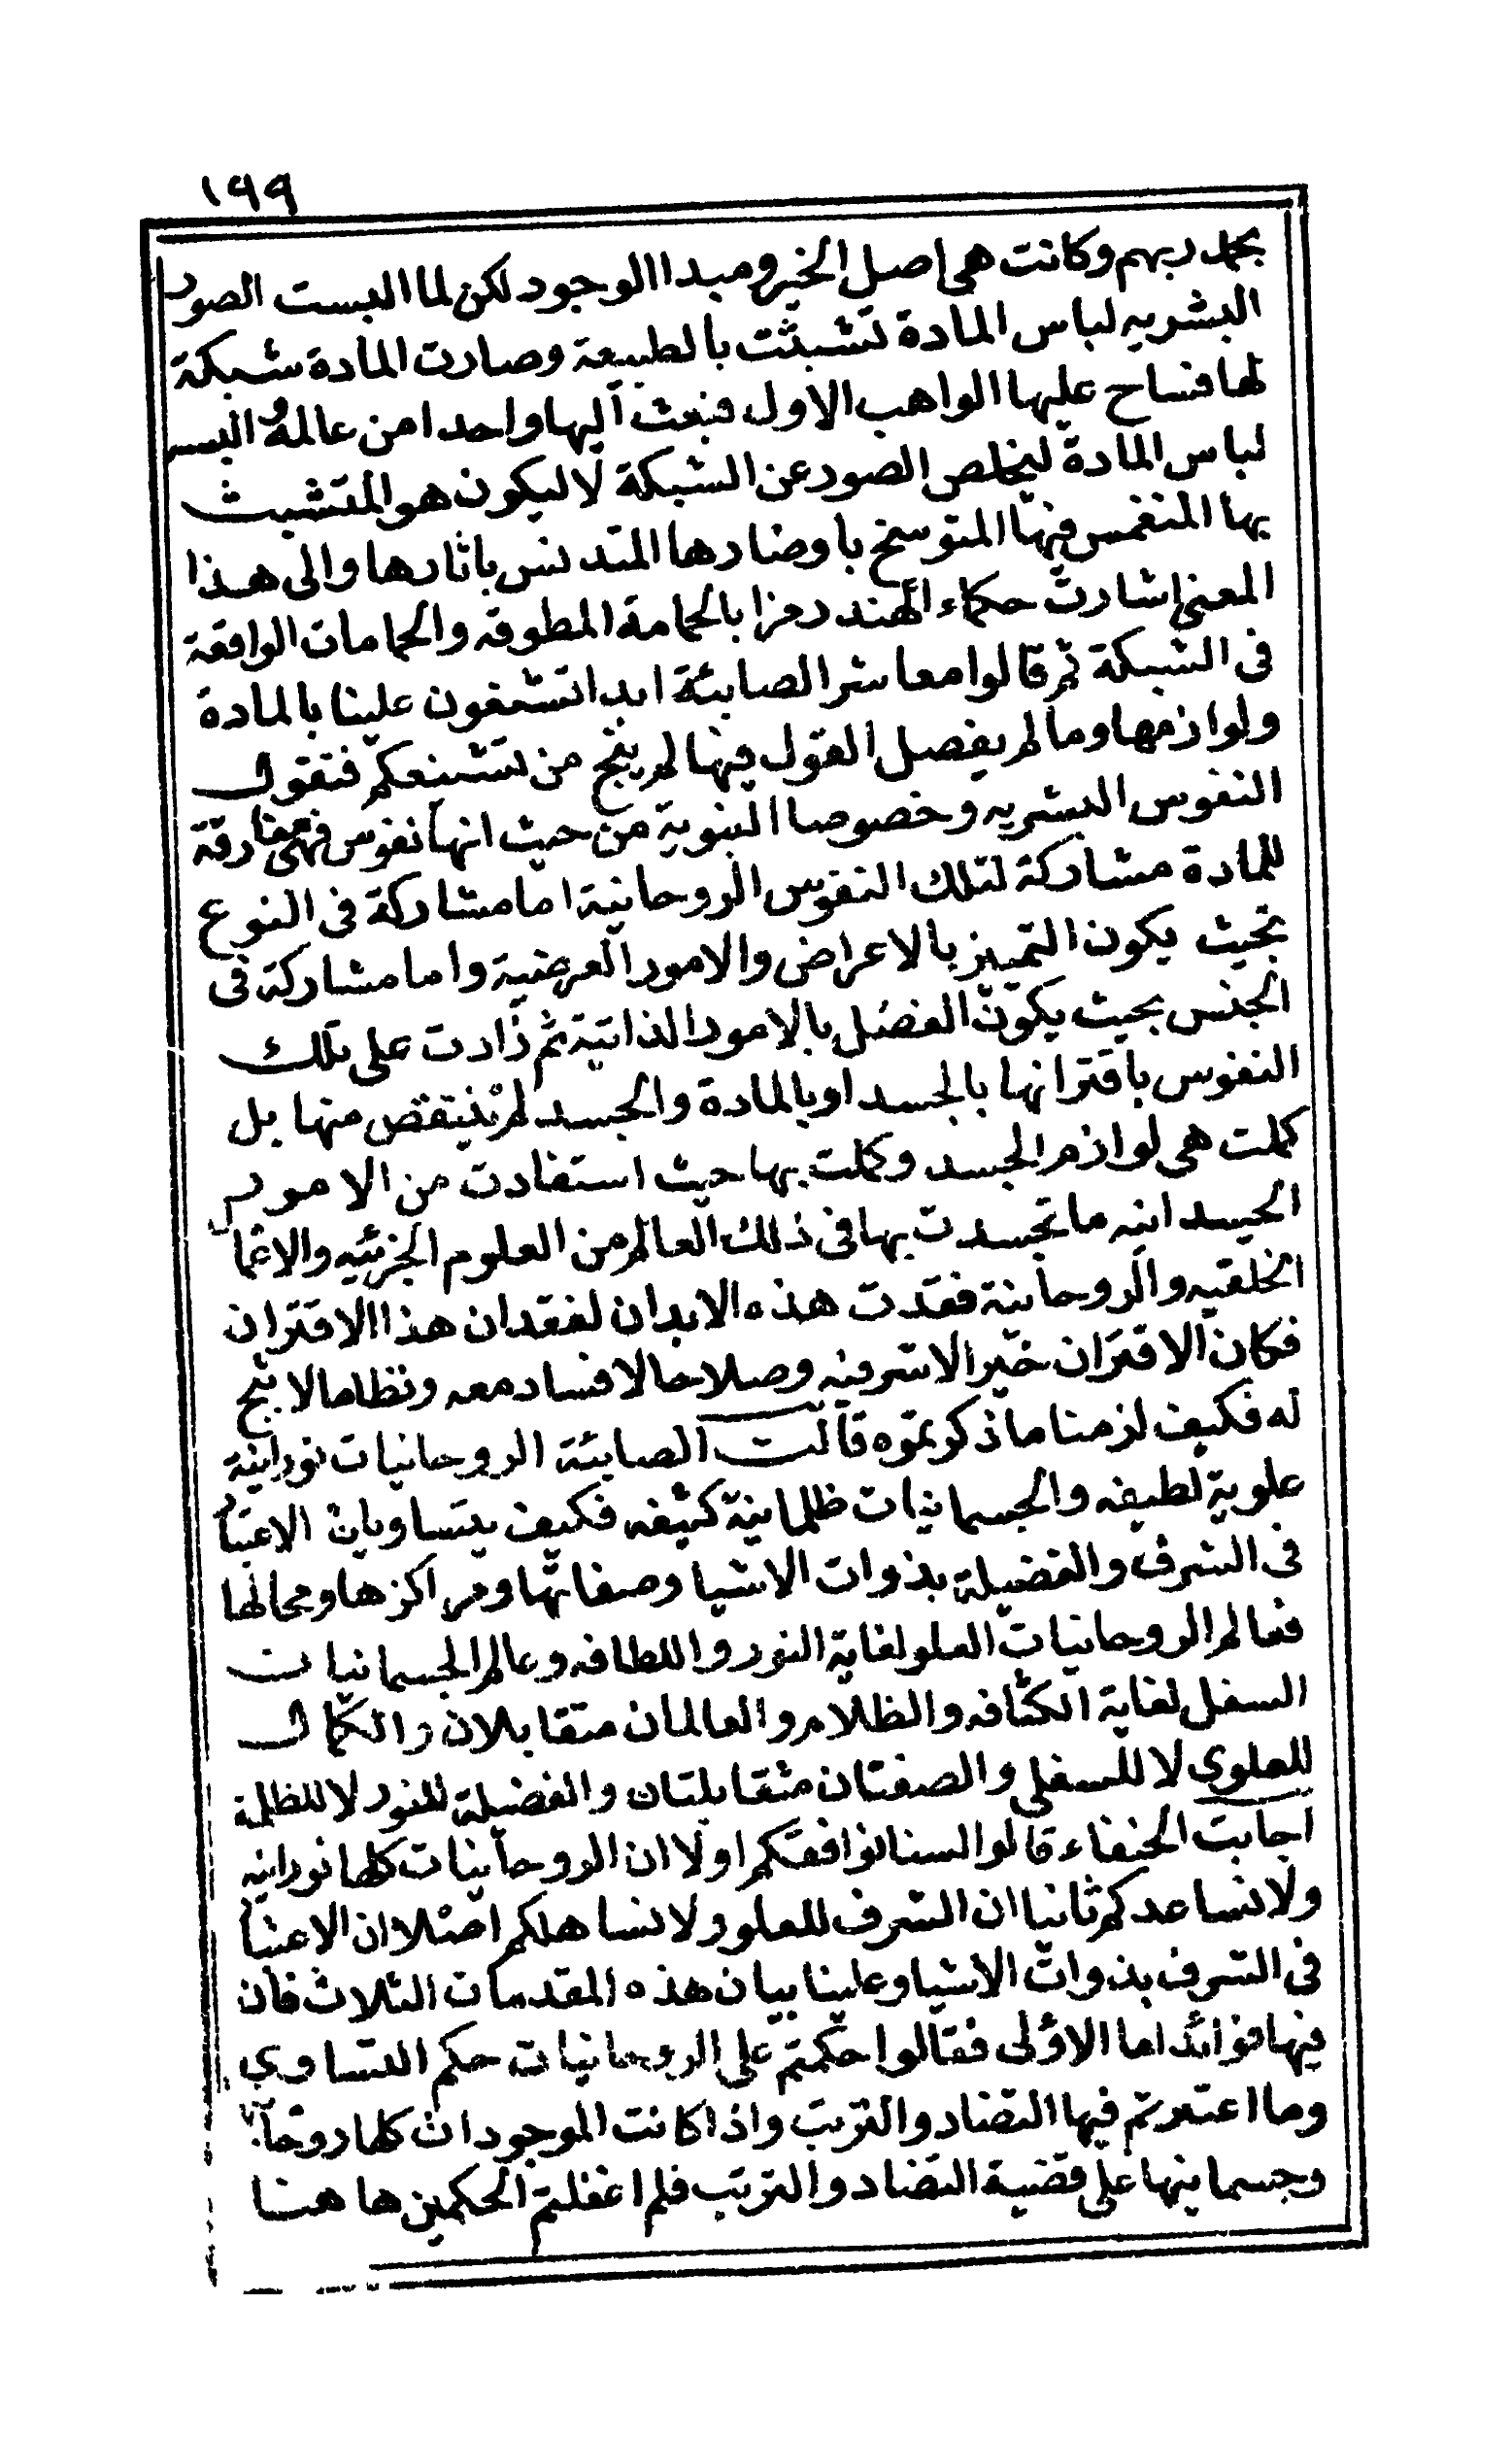 ١٩٩
بحمد ربهم وكانت هى اصل الخير ومبدا الوجود لكن لما البست الصور
البشريه لباس المادة تشبثت بالطبيعة وصارت المادة شبكة
لها فساح عليها الواهب الاول فبعث اليها واحدا من عالمه والبسه
لباس المادة ليخلص الصور عن الشبكة لا ليكون هو المتشبث
بها المنغمس فيها المتوسخ باوضارها المتدنس باثارها والى هذا
المعنى اشارت حكماء الهند رمزا بالحمامة المطوقه والحمامات الواقعة
فى الشبكة ثم قالوا معاشر الصابئة ابدا تشنعون علينا بالمادة
ولوازمها وما لم يفصل القول فيها لم ينج من تشنيعكم فنقول
النفوس البشريه وخصوصا النبوية من حيث انها نفوس فهى مفارقة
للمادة مشاركة لتلك النفوس الروحانية اما مشاركة فى النوع
بحيث يكون التمييز بالاعراض والامور العرضية واما مشاركة فى
الجنس بحيث يكون الفصل بالامور الذاتية ثم زادت على تلك
النفوس باقترانها بالجسد او بالمادة والجسد لم ينتقص منها بل
كملت هى لوازم الجسد وكملت بها حيث استفادت من الامور
الجسدانيه ما تجسدت بها فى ذلك العالم من العلوم الجزئيه والاعمال
الخلقيه والروحانية فقدت هذه الابدان لفقدان هذا الاقتران
فكان الاقتران خيرا لا شر فيه وصلاحا لا فساد معه ونظاما لا ثبج
له فكيف لزمنا ما ذكرتموه قالت الصابئة الروحانيات نورانية
علوية لطيفه والجسمانيات ظلمانية كثيفه فكيف يتساويان الاعتبار
فى الشرف والفضيلة بذوات الاشيا وصفاتها ومراكزها ومحالها
فعالم الروحانيات العلو لغاية النور واللطافه وعالم الجسمانيات
السفل لغاية الكثافه والظلام والعالمان متقابلان والكمال
للعلوي لا للسفلي والصفتان متقابلتان والفضيلة للنور لا للظلمة
اجابت الحنفاء قالوا لسنا نوافقكم اولا ان الروحانيات كلها نورانيه
ولا نساعدكم ثانيا ان الشرف للعلو ولا نساهلكم اصلا ان الاعتبار
فى الشرف بذوات الاشيا وعلينا بيان هذه المقدمات الثلاث فان
فيها فوائد اما الاولى فقالوا حكمتم على الروحانيات حكم التساوي
وما اعتبرتم فيها التضاد والترتب واذا كانت الموجودات كلها روحانيها
وجسمانيها على قضية التضاد والترتب فلم اغفلتم الحكمين ها هنا